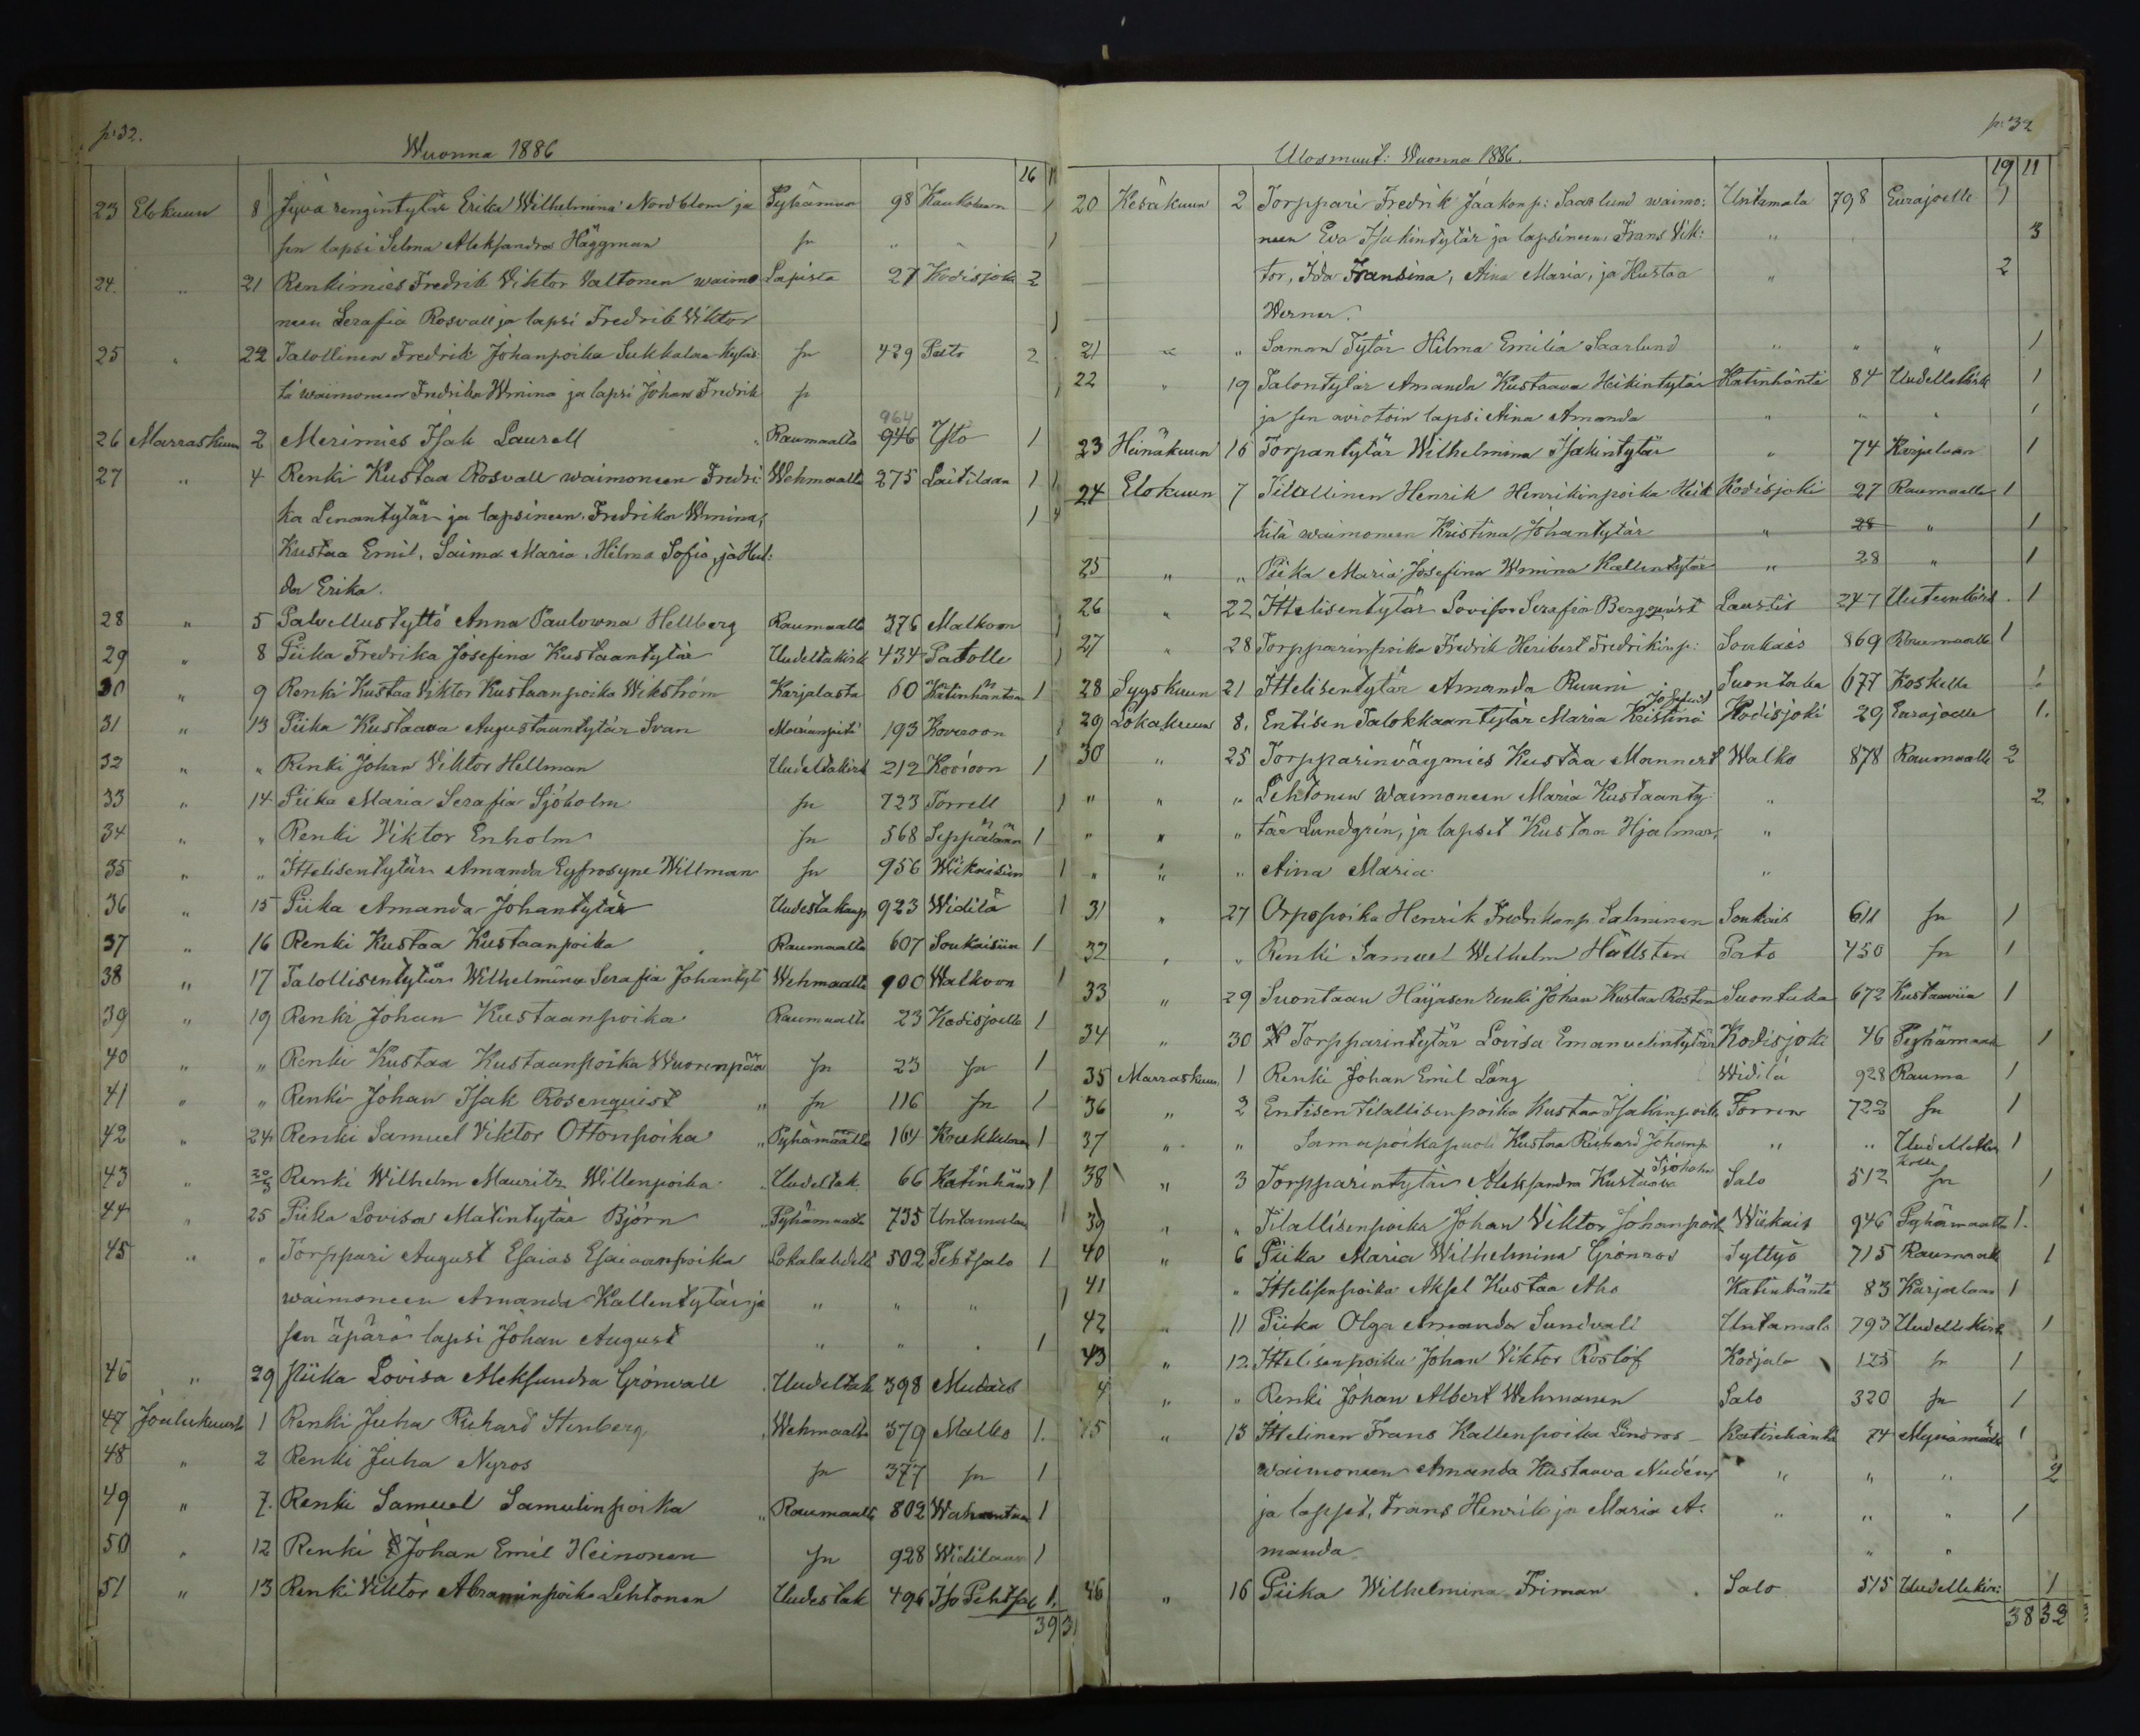 p: 32.
Wuonna 1886
16 11
23 Elokuun 8 Jyvä rengintytär Erika Wilhelmina Nordblom ja Pyhämaa 98 Kaukolaan 1
sen lapsi Selma Aleksandra Häggman sn " " 1
24. " 21 Renkimies Fredrik Viktor Valtonen waimo Lapista 27 Kodisjoki 2
neen Serafia Rosvall ja lapsi Fredrik Viktor 1
25 " 22 Talollinen Fredrik Johanpoika Sukkalan Kyläs: sn 429 Pato 2
tä waimoneen Fredrika Wmina ja lapsi Johan Fredrik sn 1
964
26 Marraskuun 2 Merimies Isak Laurell " Raumaalta 946 Ysto 1
27 " 4 Renki Kustaa Rosvall waimoneen Fredri Wehmaalta 275 Laitilaan 1 1
ka Lenantytär ja lapsineen Fredrika Wmina, 1 4
Kustaa Emil, Saima Maria, Hilma Sofia, ja Hul:
da Erika.
28 " 5 Palvellustyttö Anna Paulowna Hellberg Raumaalta 376 Malkoon 1
29 " 8 Piika Fredrika Josefina Kustaantytär Uudeltakirk 434 Patolle 1
30 " 9 Renki Kustaa Viktor Kustaanpoika Wikström Karjalasta 60 Katinhäntän 1
31 " 13 Piika Kustaava Augustaantytär Svan 193 Kovioon 1
32 " " Renki Johan Viktor Hellman Uudeltakirk 212 Kovioon 1
33 " 14 Piika Maria Serafia Sjöholm sn 723 Torrell 1
34 " " Renki Viktor Enholm sn 568 Seppälään 1
35 " " Ittelisentytär Amanda Eyfrosyne Willman sn 956 Wiikaisiin 1
36 " 15 Piika Amanda Johantytär Uudestakaup 923 Widilä 1
37 " 16 Renki Kustaa Kustaanpoika Raumaalta 607 Soukaisiin 1
38 " 17 Talollisentytär Wilhelmina Serafia Johantytä Wehmaalta 900 Walkoon 1
39 " 19 Renki Johan Kustaanpoika Raumaalta 23 Kodisjoelle 1
40 " " Renki Kustaa Kustaanpoika Wuorenpää sn 23 sn 1
41 " " Renki Johan Isak Rosenquist " sn 116 sn 1
42 " 24 Renki Samuel Viktor Ottonpoika " Pyhämaalta 164 Koukkelaan 1
43 " Renki Wilhelm Mauritz Willenpoika Uudeltak 66 Katinhänt 1
44 " 25 Piika Lovisa Matintytär Björn " Pyhämaasta 735 Untamalaan 1
45 " " Torppari August Esaias Esaiaanpoika Lokalahdelta 502 Pehtsalo 1
waimoneen Amanda Kallentytär ja " " " 1
sen äpärä lapsi Johan August " " " 1
46 " 29 Piika Lovisa Aleksandra Grönvall Uudeltak 398 Mudais
47 Joulukuusta 1 Renki Juha Richard Stenberg Wehmaalta 379 Malko 1.
48 " 2 Renki Juha Nyros sn 377 sn 1
49 " 7. Renki Samuel Samulinpoika " Raumaalta 802 Wahantaan 1
50 " 12 Renki Johan Emil Heinonen sn 928 Widilaan 1
51 " 13 Renki Viktor Abraminpoika Lehtonen Uudestak 496 Iso Pehtsalo 1.
39 31
p: 32
Ulosmuut: Wuonna 1886.
19 11
20 Kesäkuun 2 Torppari Fredrik Jaakonp: Saarlund waimo: Untamala 798 Eurajoelle 1
neen Eva Isakintytär ja lapsineen, Frans Vik: " 3
tor, Ida Fransina, Aina Maria, ja Kustaa " 2
Werner.
21 " " Saman Tytär Hilma Emilia Saarlund " " " 1
22 " 19 Talontytär Amanda Kustaava Heikintytär Katinhäntä 84 Uudellekirk 1
ja sen aviotoin lapsi Aina Amanda " " " 1
23 Heinäkuun 16 Torpantytär Wilhelmina Isakintytär " 74 Karjalaan 1
24 Elokuun 7 Tilallinen Henrik Henrikinpoika Heik Kodisjoki 27 Raumaalle 1
kilä waimoneen Kristina Johantytär " 28 " 1
25 " " Piika Maria Josefina Wmina Kallentytär " 28 " 1
26 " 22 Ittelisentytär Lovisa Serafia Bergqvist Laustis 247 Uuteenkirk 1
27 " 28 Torpparinpoika Fredrik Heribert Fredrikinp: Soukais 869 Raumaalle 1
28 Syyskuun 21 Ittelisentytär Amanda Ruuni Suontaka 677 Koskelle 1
29 Lokakuun 8. Entisen Talokkaantytär Maria Kristina Kodisjoki 29 Eurajoelle 1.
30 " 25 Torpparinväymies Kustaa Mannert Walko 878 Raumaalle 2
" " " Lehtonen Waimoneen Maria Kustaanty: " 2
" " " tär Lundgrén, ja lapset Kustaa Hjalmar, "
" " " Aina Maria "
31 " 27 Orpopoika Henrik Fredrikanp. Salminen Soukais 611 sn 1
32 " " Renki Samuel Wilhelm Hällsten Pato 450 sn 1
33 " 29 Suontaan Häyäsen renki Johan Kustaa Rosten Suontaka 672 Kustaaviin 1
34 " 30 Torpparintytär Lovisa Emanuelintytär Kodisjoki 46 Pyhämaah 1
35 Marraskuu 1 Renki Johan Emil Läng Widilä 928 Rauma 1
36 " 2 Entisen tilallisenpoika Kustaa Isakinpoika Torren 722 sn 1
37 " " Samapoikapuoli Kustaa Richard Johanp " " Uudellekau 1
Sjöholm
38 " 3 Torpparintytär Aleksandra Kustaava Salo 512 sn 1
39 " " Tilallisenpoika Johan Viktor Johanpoik Wiikais 946 Pyhämaalle 1.
40 " 6 Piika Maria Wilhelmina Grönroos Syttyö 715 Raumaalle 1
41 " Ittelisenpoika Aksel Kustaa Aho Katinhäntä 83 Karjalaan 1
42 " 11 Piika Olga Amanda Sundvall Untamala 793 Uudellekirk 1
43 " 12 Ittelisenpoika Johan Viktor Roslöf Kodjala 125 sn 1
4 " " Renki Johan Albert Wehmanen Salo 320 sn 1
45 " 13 Ittelinen Frans Kallenpoika Lindros Katinhäntä 74 Mynämäelle 1
waimoneen Amanda Kustaava Nudén, " " " 2
ja lapset, Frans Henrik ja Maria A: " " " 1
manda " "
46 " 16 Piika Wilhelmina Friman Salo 515 Uudellekir: 1
38 32